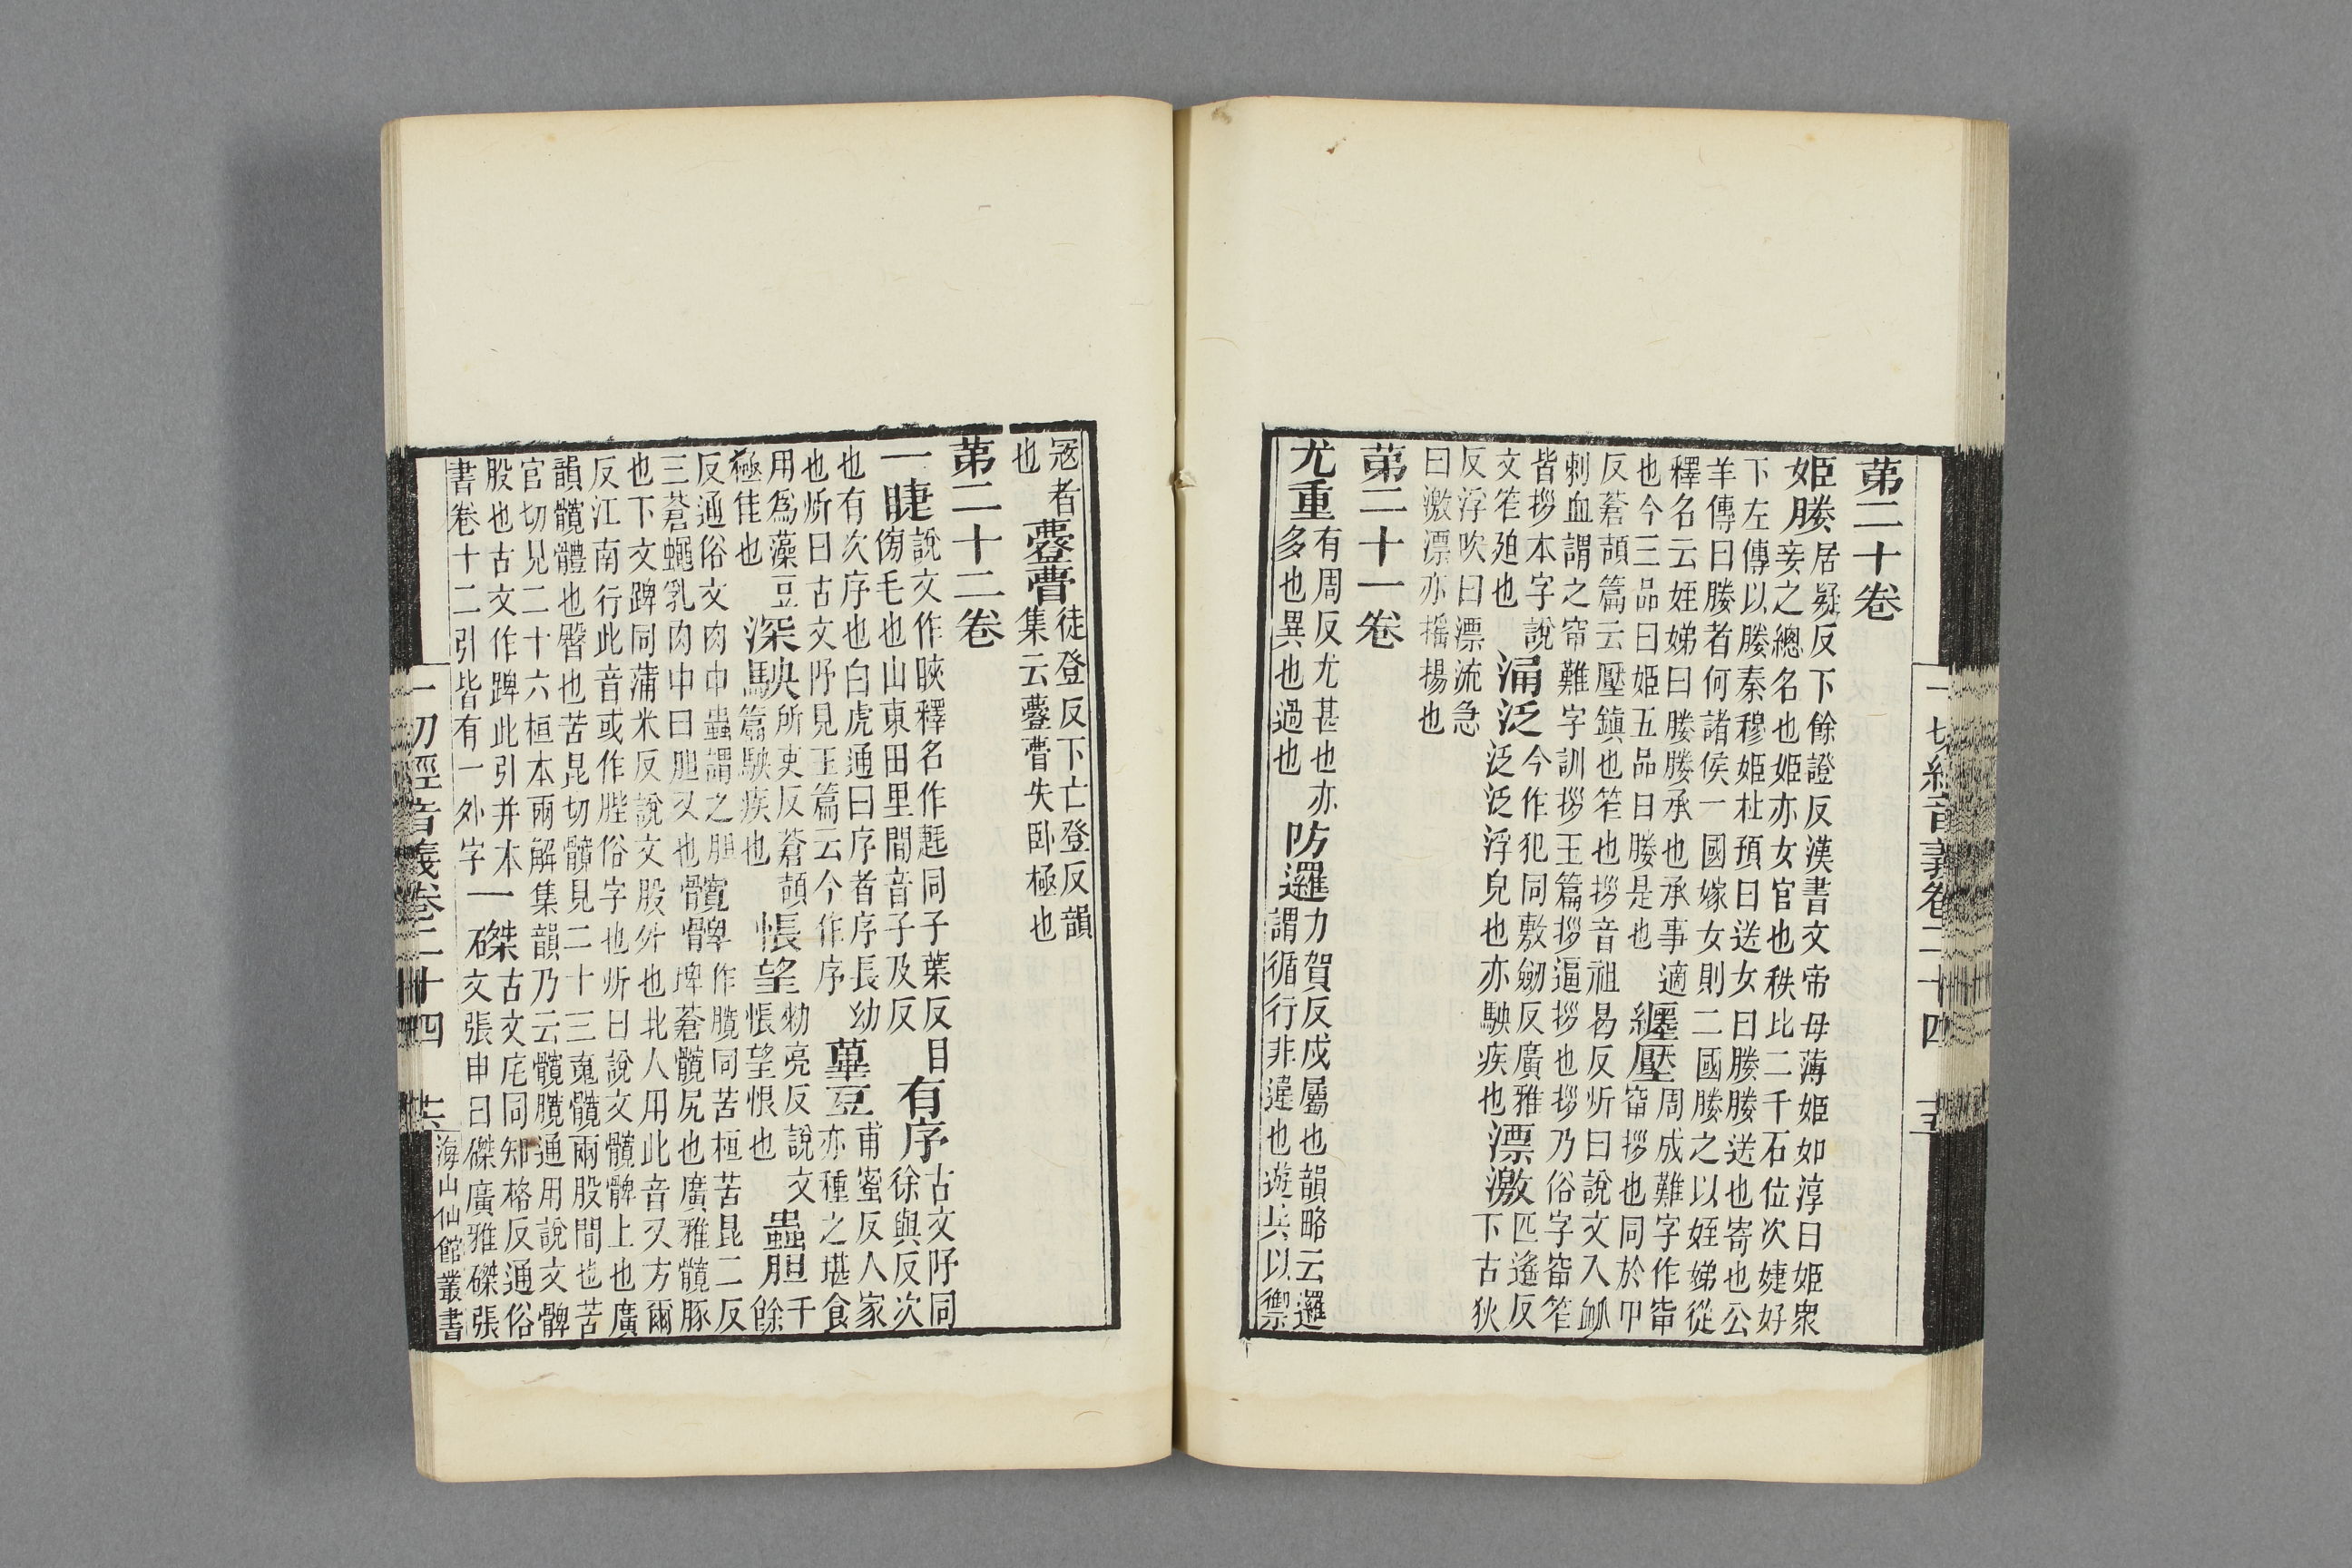 一切經音義卷二十四 十五
第二十卷
姬媵居疑反下餘證反漢書文帝母薄姬如淳曰姬衆
妾之總名也姬亦女官也秩比二千石位次婕妤
下左傳以媵秦穆姬杜預曰送女曰媵媵送也寄也公
羊傳曰媵者何諸侯一國嫁女則二國媵之以姪娣從
釋名云姪娣曰媵媵承也承事適
也今三品曰姬五品曰媵是也
纏壓周成難字作窄
窄拶也同於甲
反蒼頡篇云壓鎮也笮也拶音祖曷反炘曰說文入䘐
刺血謂之窄難字訓拶王篇拶逼拶也拶乃俗字窄笮
皆拶本字說
文笮廹也
涌泛今作犯同敷劒反廣雅
泛泛浮皃也亦駚疾也
漂激匹遙反
下古狄
反浮吹曰漂流急
曰激漂亦摇揚也
第二十一卷
尤重有周反尤甚也亦
多也異也過也
防邏力賀反戍屬也韻略云邏
謂循行非違也遊兵以禦
寇者
也
䒚瞢徒登反下亡登反韻
集云䒚瞢失卧極也
第二十二卷
一睫說文作䀹釋名作䟑同子葉反目
㑂毛也山東田里間音子及反
有序古文㐨同
徐與反次
也有次序也白虎通曰序者序長幼
也炘曰古文㐨見玉篇云今作序
萆豆甫蜜反人家
亦種之堪食
用爲藻豆
極佳也
深駚所吏反蒼頡
篇駚疾也
悵望勑亮反說文
悵望恨也
蟲胆千餘
反通俗文肉中蟲謂之胆
三蒼蠅乳肉中曰胆又也
髖髀作臗同苦桓苦昆二反
埤蒼髖尻也廣雅髖豚
也下文髀同蒲米反說文股外也北人用此音又方爾
反江南行此音或作䏶俗字也炘曰說文髖髀上也廣
韻髖體也臀也苦昆切髖見二十三寬髖兩股間也苦
官切見二十六桓本兩解集韻乃云髖臗通用說文髀
股也古文作踝此引并本
書卷十二引皆有一外字
一磔古文厇同知格反通俗
文張申曰磔廣雅磔張
一切經音義卷二十四 十六 海山仙館叢書